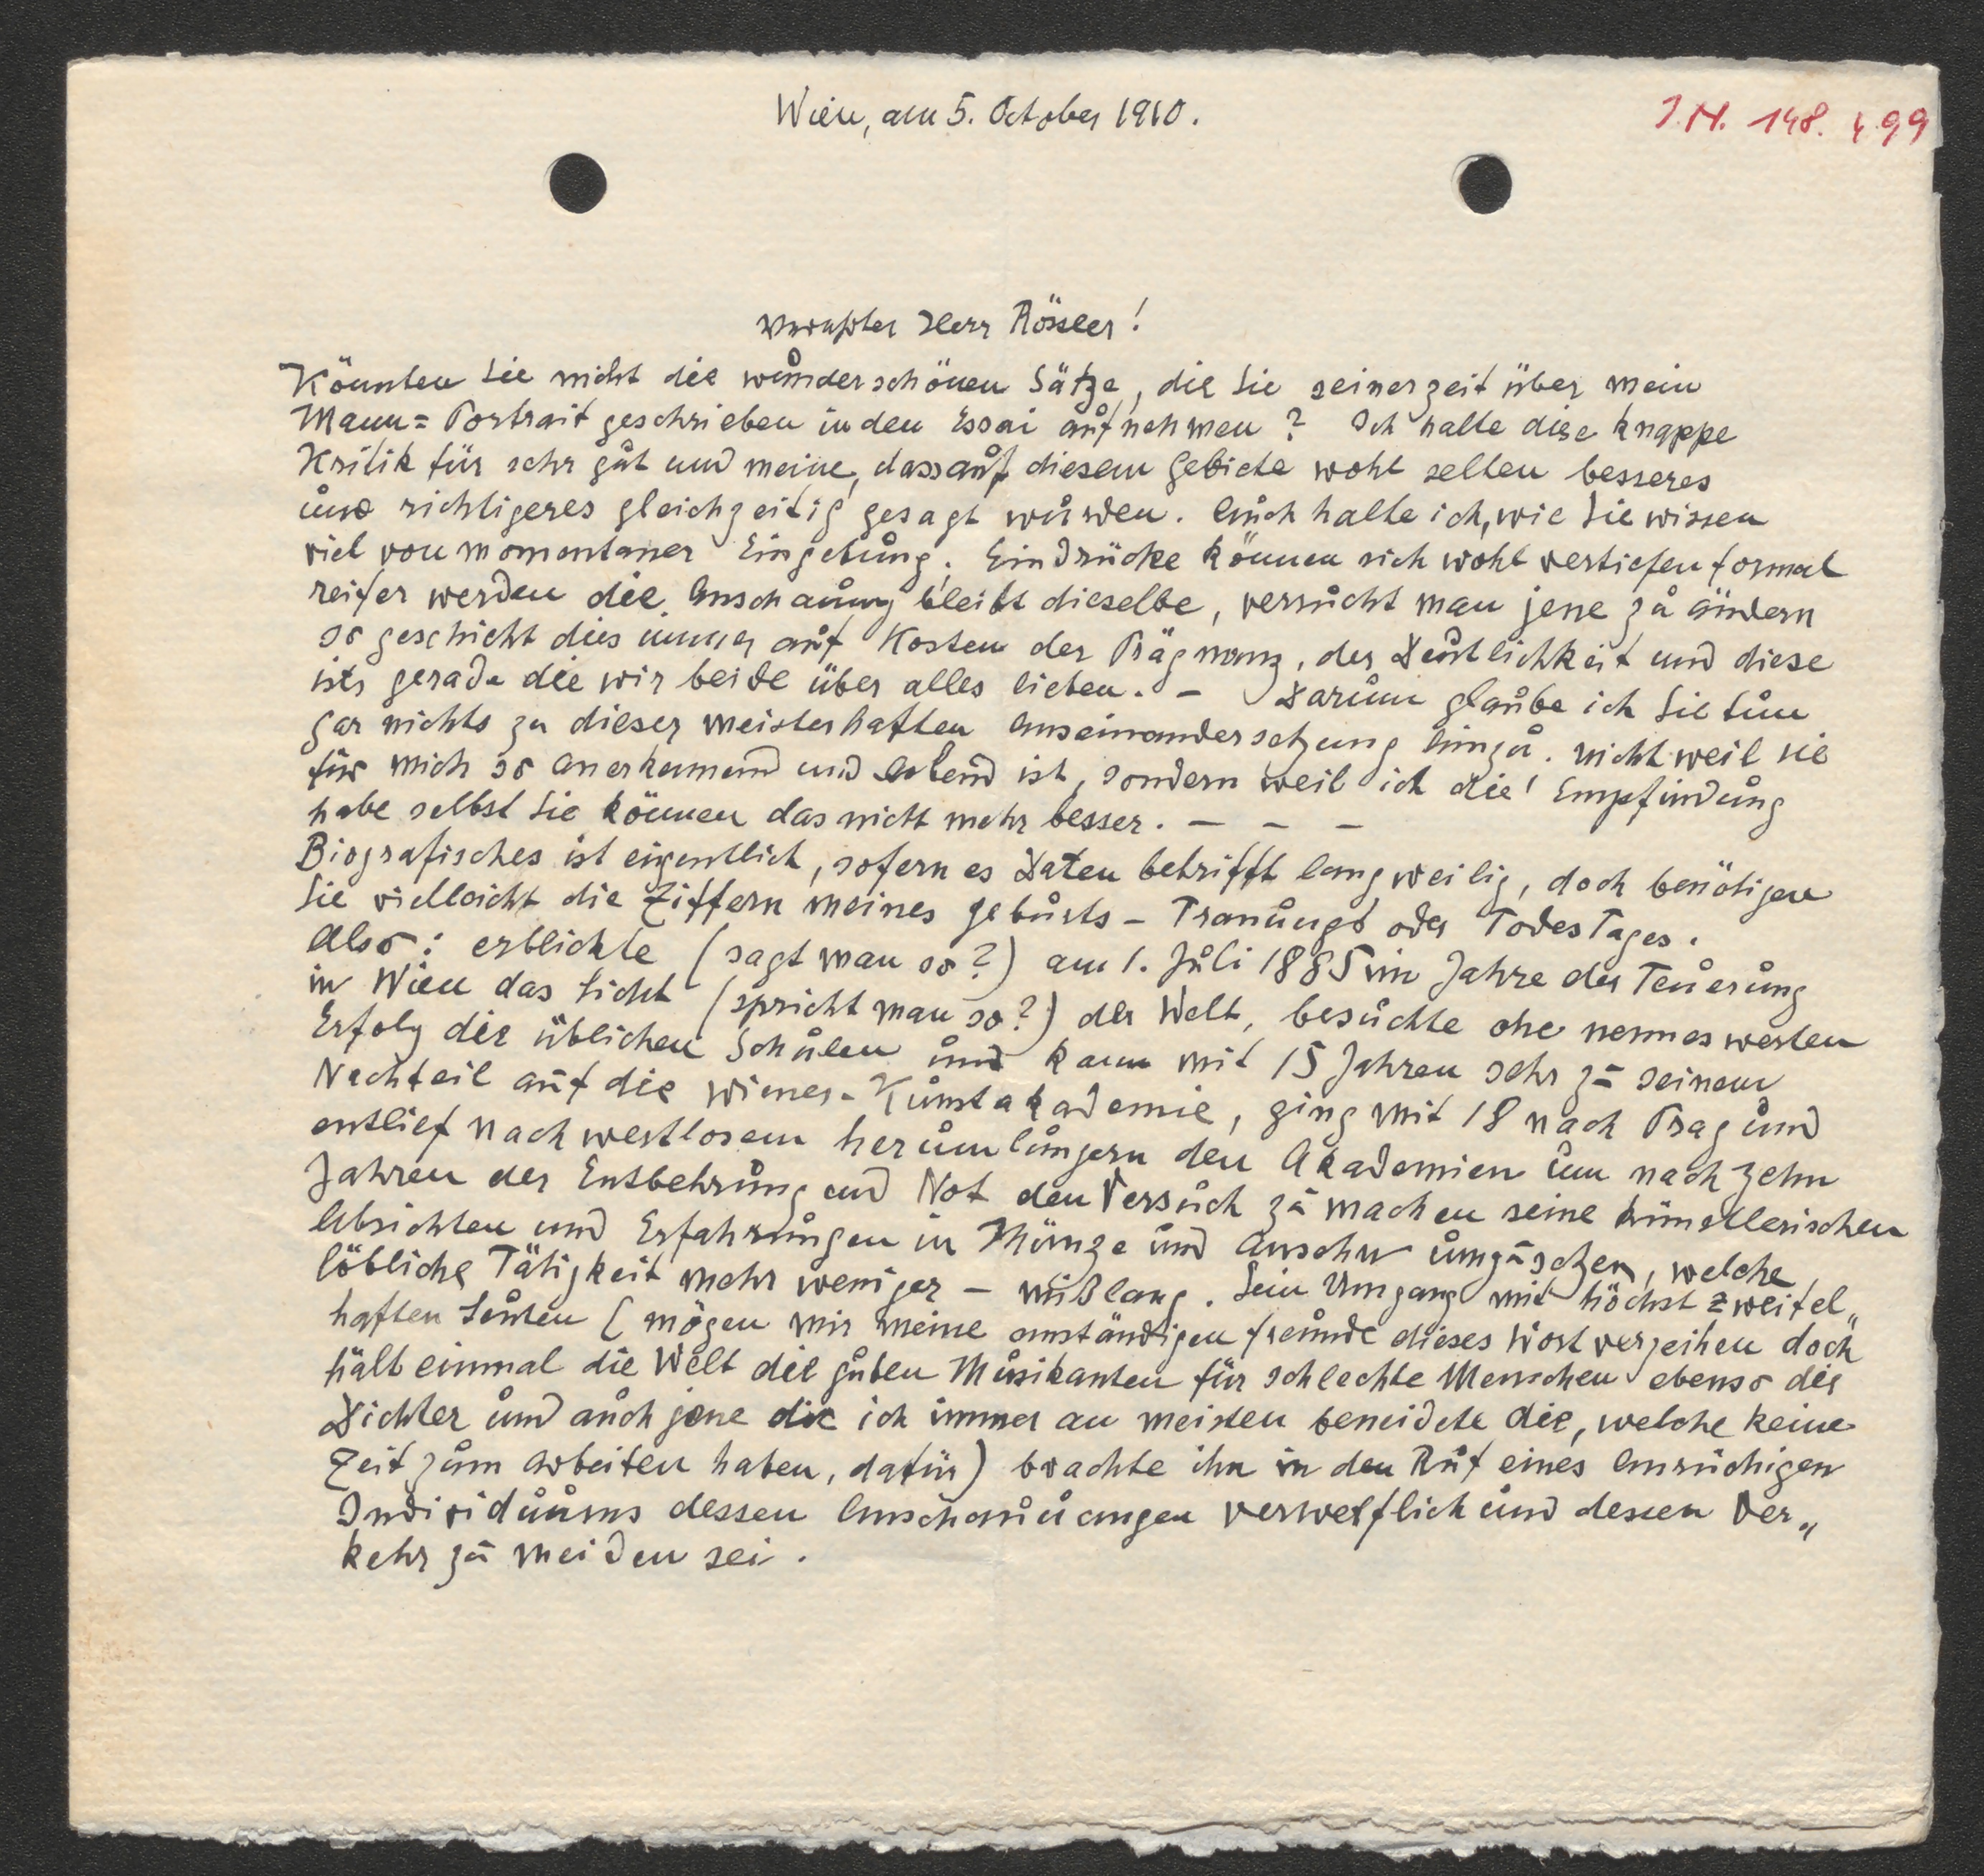 Wien, am 5. October 1910.
I.N. 148.499
Verehrter Herr Rössler!
Könnten Sie nicht die wunderschönen Sätze, die Sie seinerzeit über mein
Mann=Portrait geschrieben in den Essai aufnehmen? Ich halte diese knappe
Kritik für sehr gut und meine, dass auf diesem Gebiete wohl selten besseres
und richtigeres gleichzeitig gesagt wurden. Auch halte ich, wie Sie wissen
viel von momentaner Eingebung. Eindrücke können sich wohl vertiefen formal
reifer werden die Anschauung bleibt dieselbe, versucht man jene zu ändern
so geschieht dies immer auf Kosten der Prägnanz, der Deutlichkeit und diese
ists gerade die wir beide über alles lieben. – Darum glaube ich Sie tun
gar nichts zu dieser meisterhaften Auseinandersetzung hinzu. nicht weil sie
für mich so anerkennend und lobend ist, sondern weil ich die Empfindung
habe selbst Sie können das nicht mehr besser. – – –
Biografisches ist eigentlich, sofern es Daten betrifft langweilig, doch benötigen
Sie vielleicht die Ziffern meines Geburts – Trauungs oder Todes Tages.
Also: erblickte (sagt man so?) am 1. Juli 1885 im Jahre der Teuerung
in Wien das Licht (spricht man so?) der Welt, besuchte ohe nenneswerten
Erfolg die üblichen Schulen und kam mit 15 Jahren sehr zu seinem
Nachteil auf die wiener-Kunstakademie, ging mit 18 nach Prag und
entlief nach wertlosem herumlungern den Akademien um nach zehn
Jahren der Entbehrung und Not den Versuch zu machen seine künstlerischen
Absichten und Erfahrungen in Münze und Ansehn umzusetzen, welche
löbliche Tätigkeit mehr weniger – mißlang. Sein Umgang mit höchst zweifel„
haften Leuten (mögen mir meine anständigen freunde dieses Wort verzeihen doch
hält einmal die Welt die guten Musikanten für schlechte Menschen ebenso die
Dichter und auch jene die ich immer am meisten beneidete die, welche keine
Zeit zum arbeiten haben, dafür) brachte ihn in den Ruf eines anrüchigen
Individuums dessen Anschauuungen verwerflich und dessen Ver„
kehr zu meiden sei.